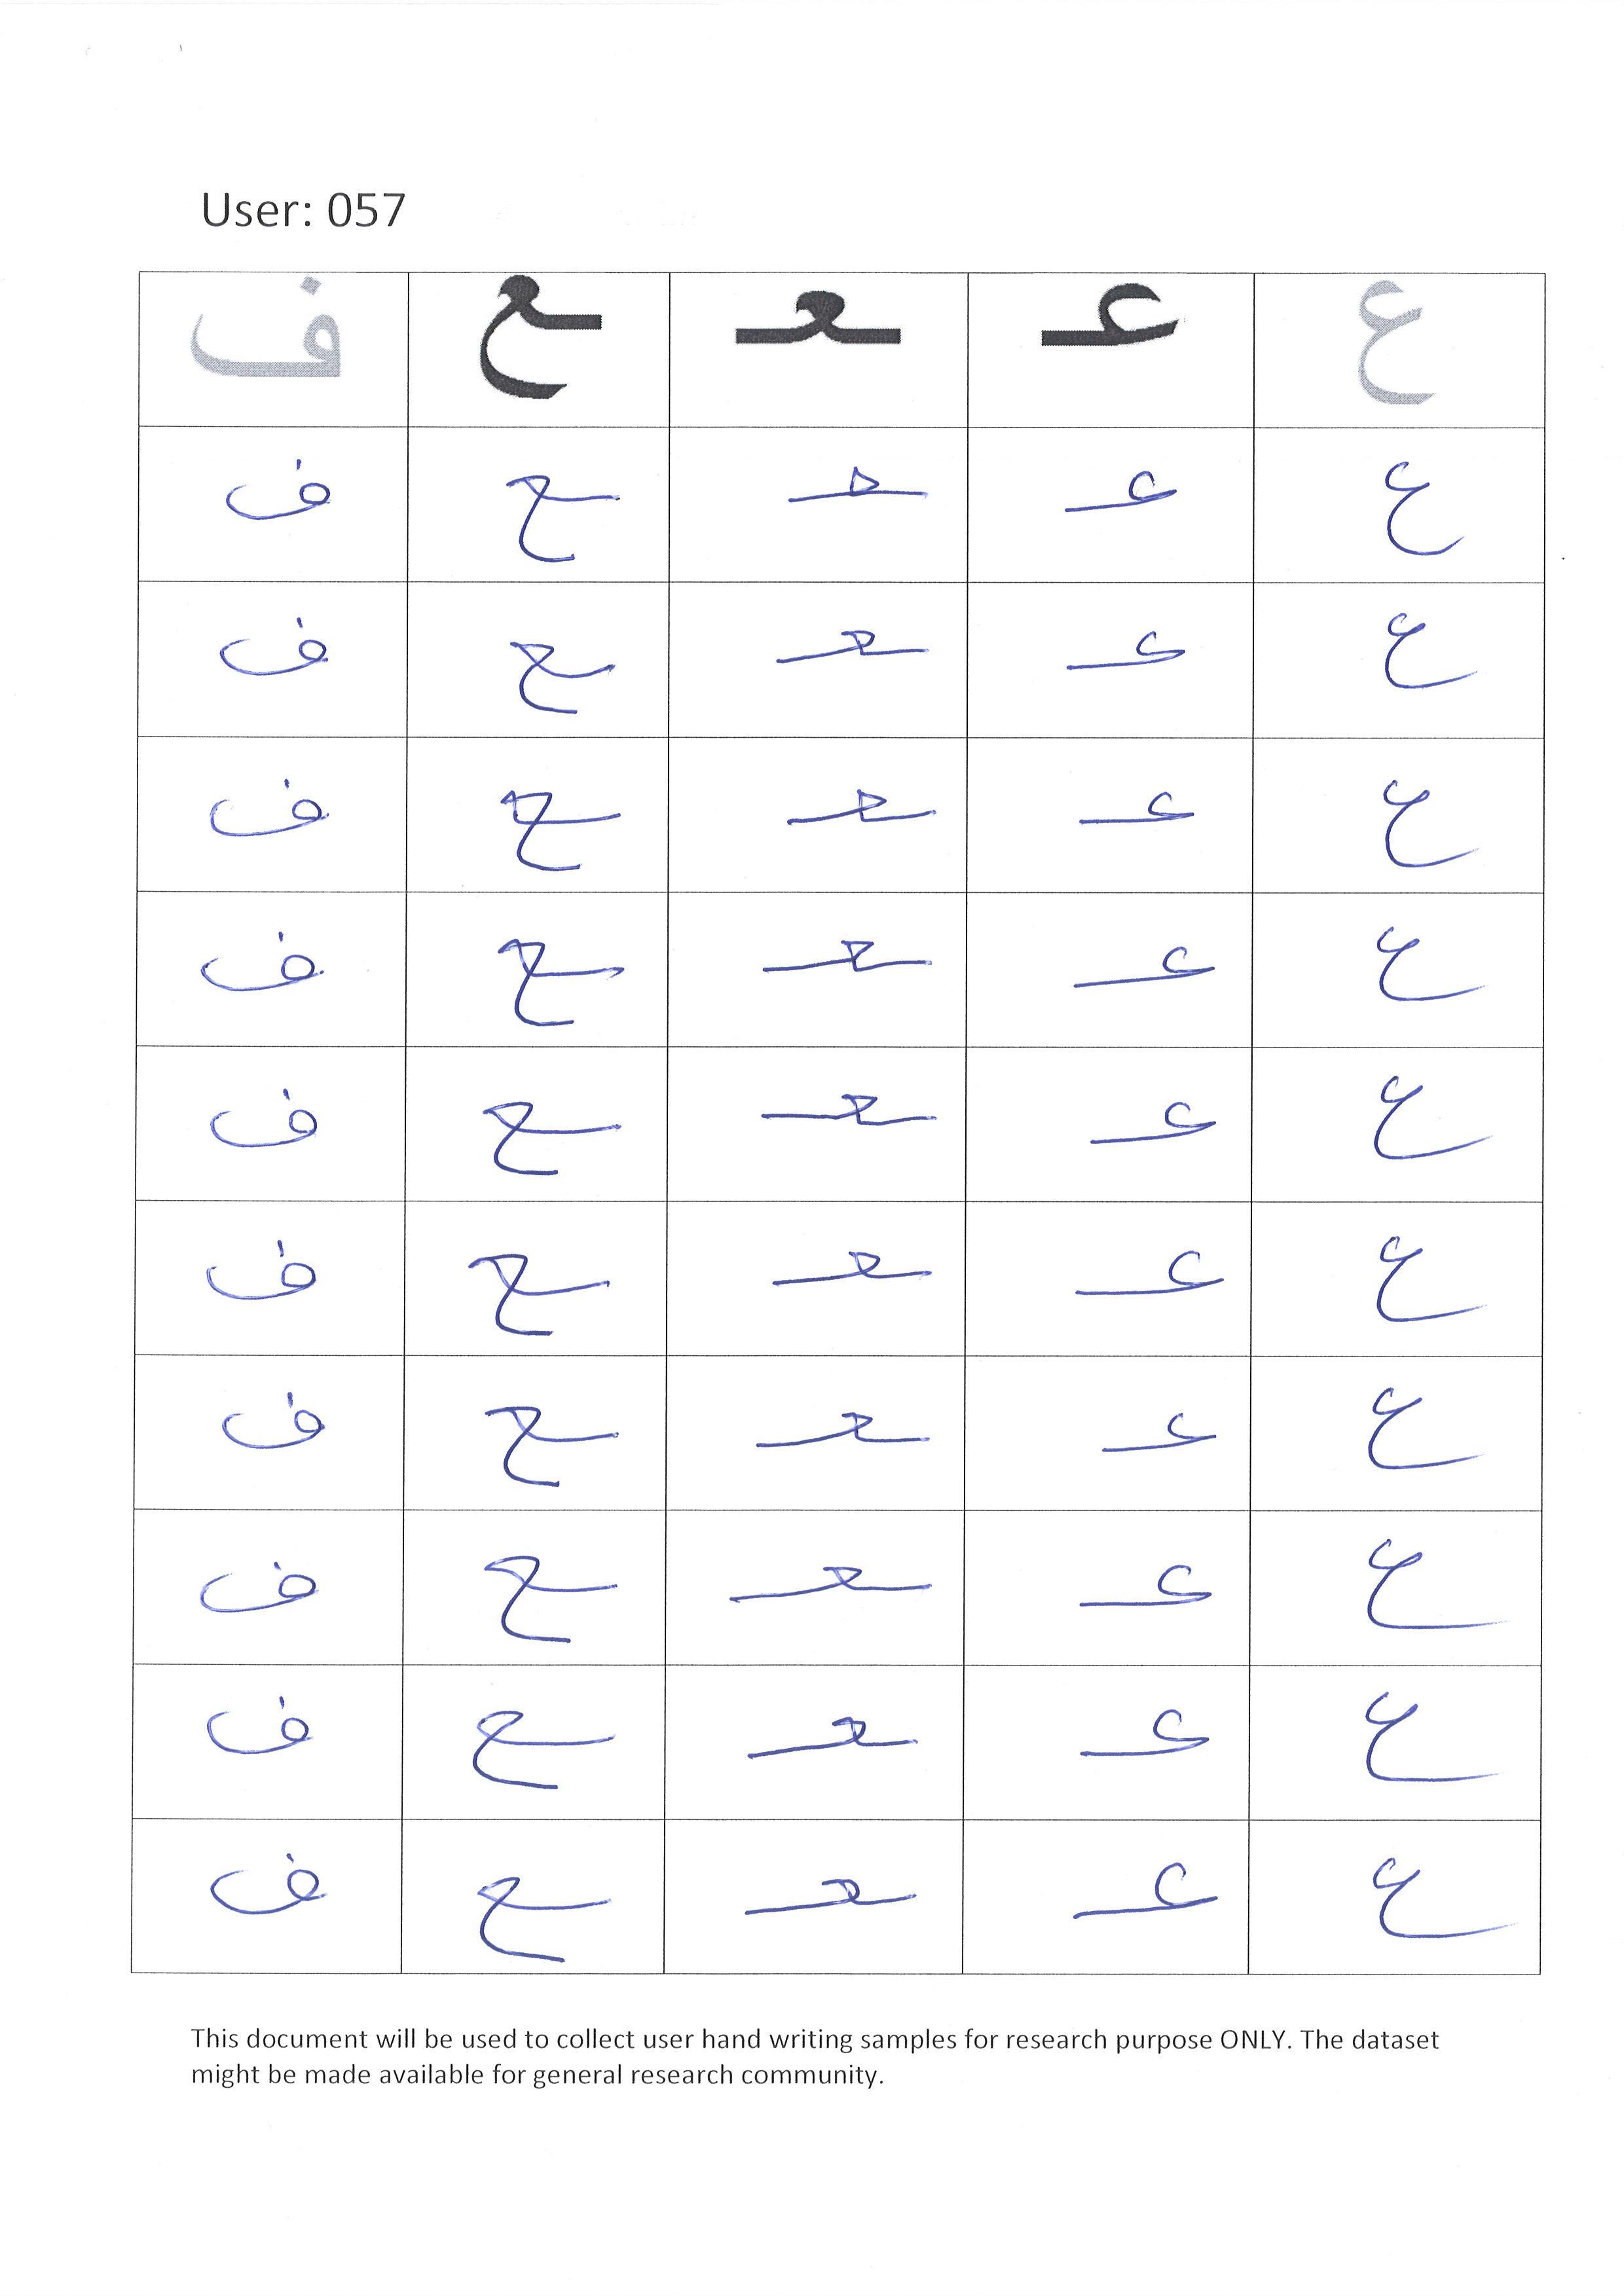 User: 057
ع عـ ـعـ ـع ف
ع عـ ـعـ ـع ف
ع عـ ـعـ ـع ف
ع عـ ـعـ ـع ف
ع عـ ـعـ ـع ف
ع عـ ـعـ ـع ف
ع عـ ـعـ ـع ف
ع عـ ـعـ ـع ف
ع عـ ـعـ ـع ف
ع عـ ـعـ ـع ف
ع عـ ـعـ ـع ف
This document will be used to collect user hand writing samples for research purpose ONLY. The dataset
might be made available for general research community.